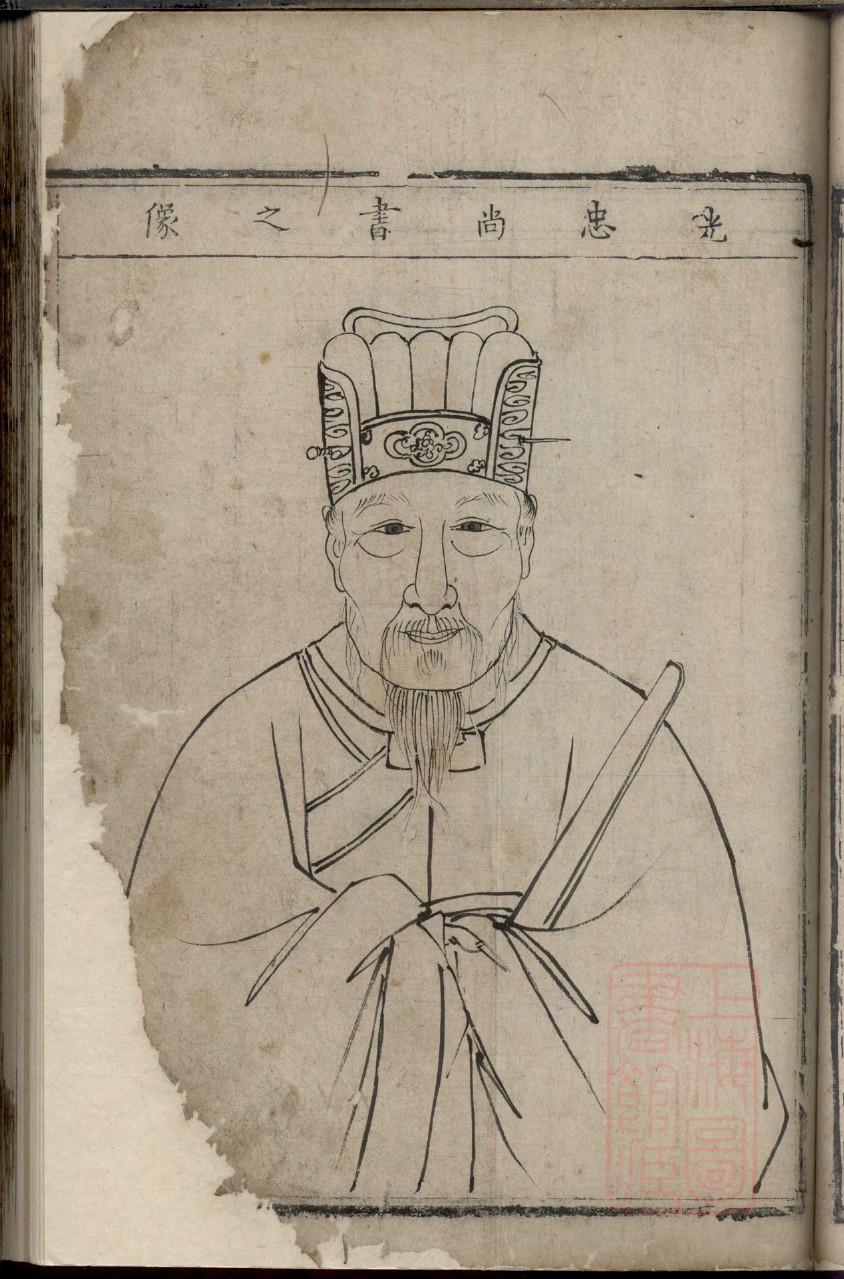 光忠尚書之像
上海圖
書館藏